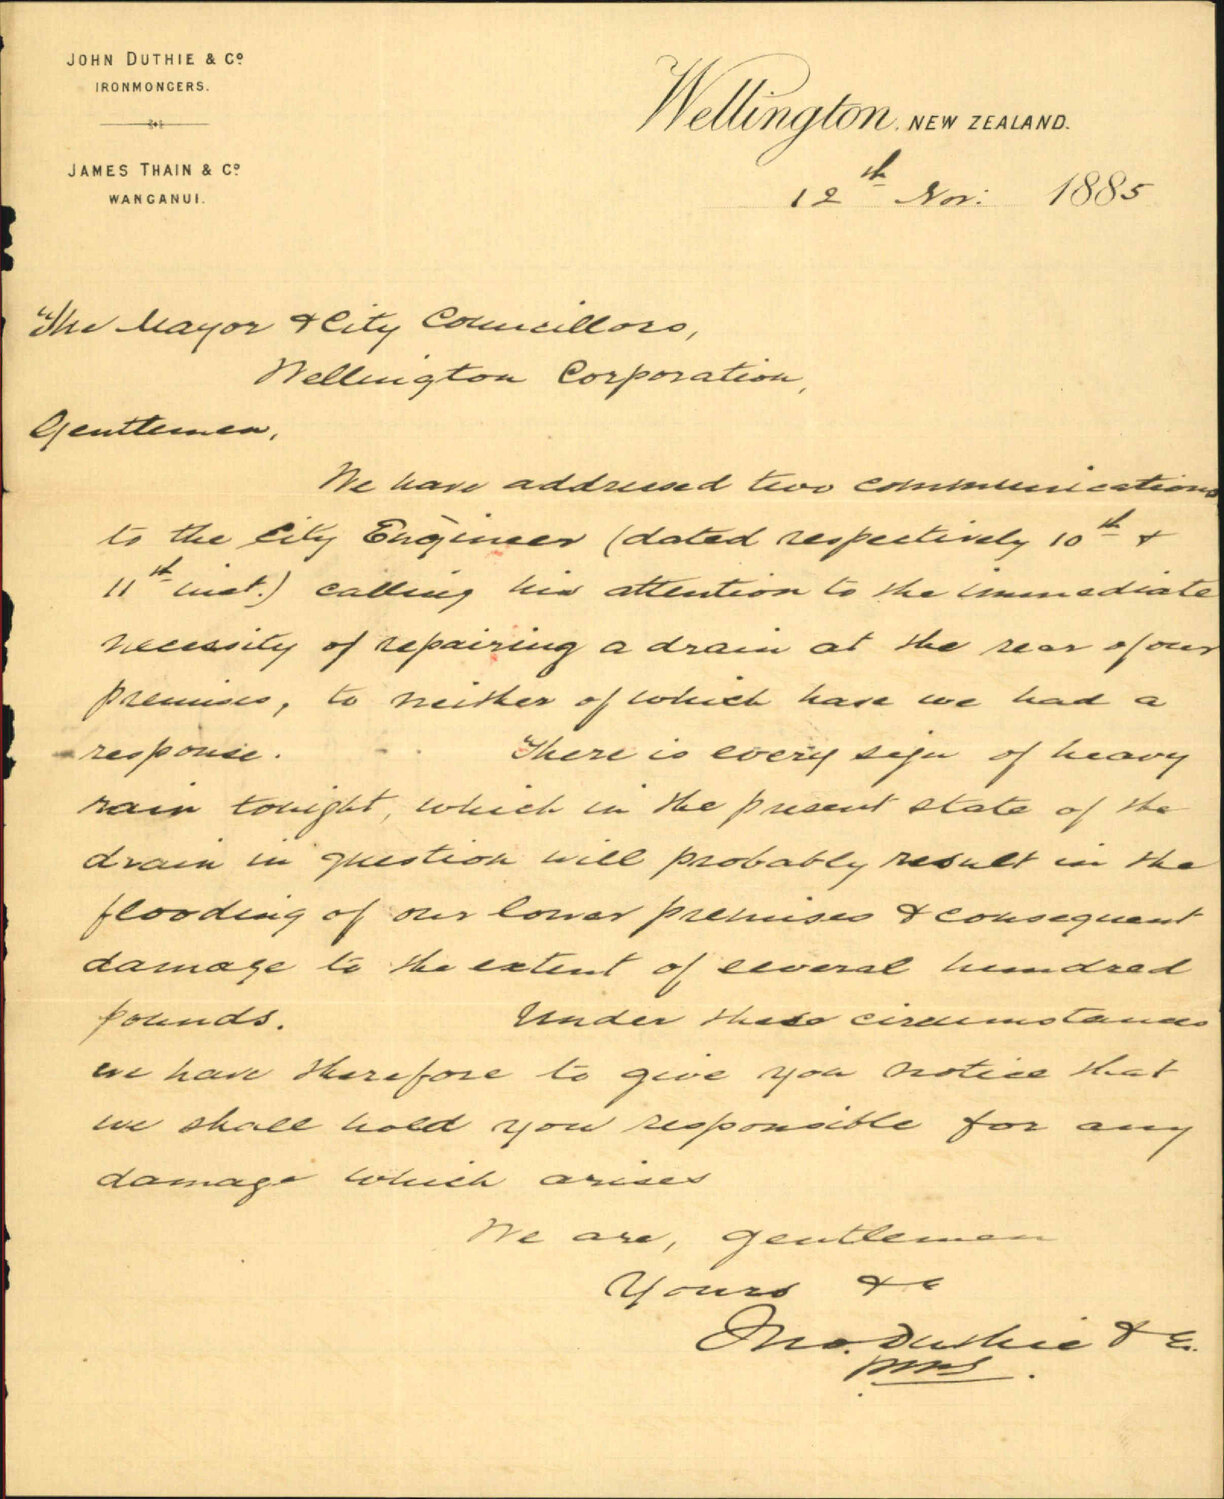 JOHN DUTHIE & Co
IRONMONGERS.
JAMES THAIN & Co
WANGANUI.
Wellington, NEW ZEALAND.
12th Nov: 1885
The Mayor & City Councillors,
Wellington Corporation,
Gentlemen,
We have addressed two communications
to the City Engineer (dated respectively 10th &
11th inst.) calling his attention to the immediate
necessity of repairing a drain at the rear of our
premises, to neither of which have we had a
response. There is every sign of heavy
rain tonight, which in the present state of the
drain in question will probably result in the
flooding of our lower premises & consequent
damage to the extent of several hundred
pounds. Under these circumstances
we have therefore to give you notice that
we shall hold you responsible for any
damage which arises
We are, gentlemen
Yours &c
Jno. Duthie & Co.